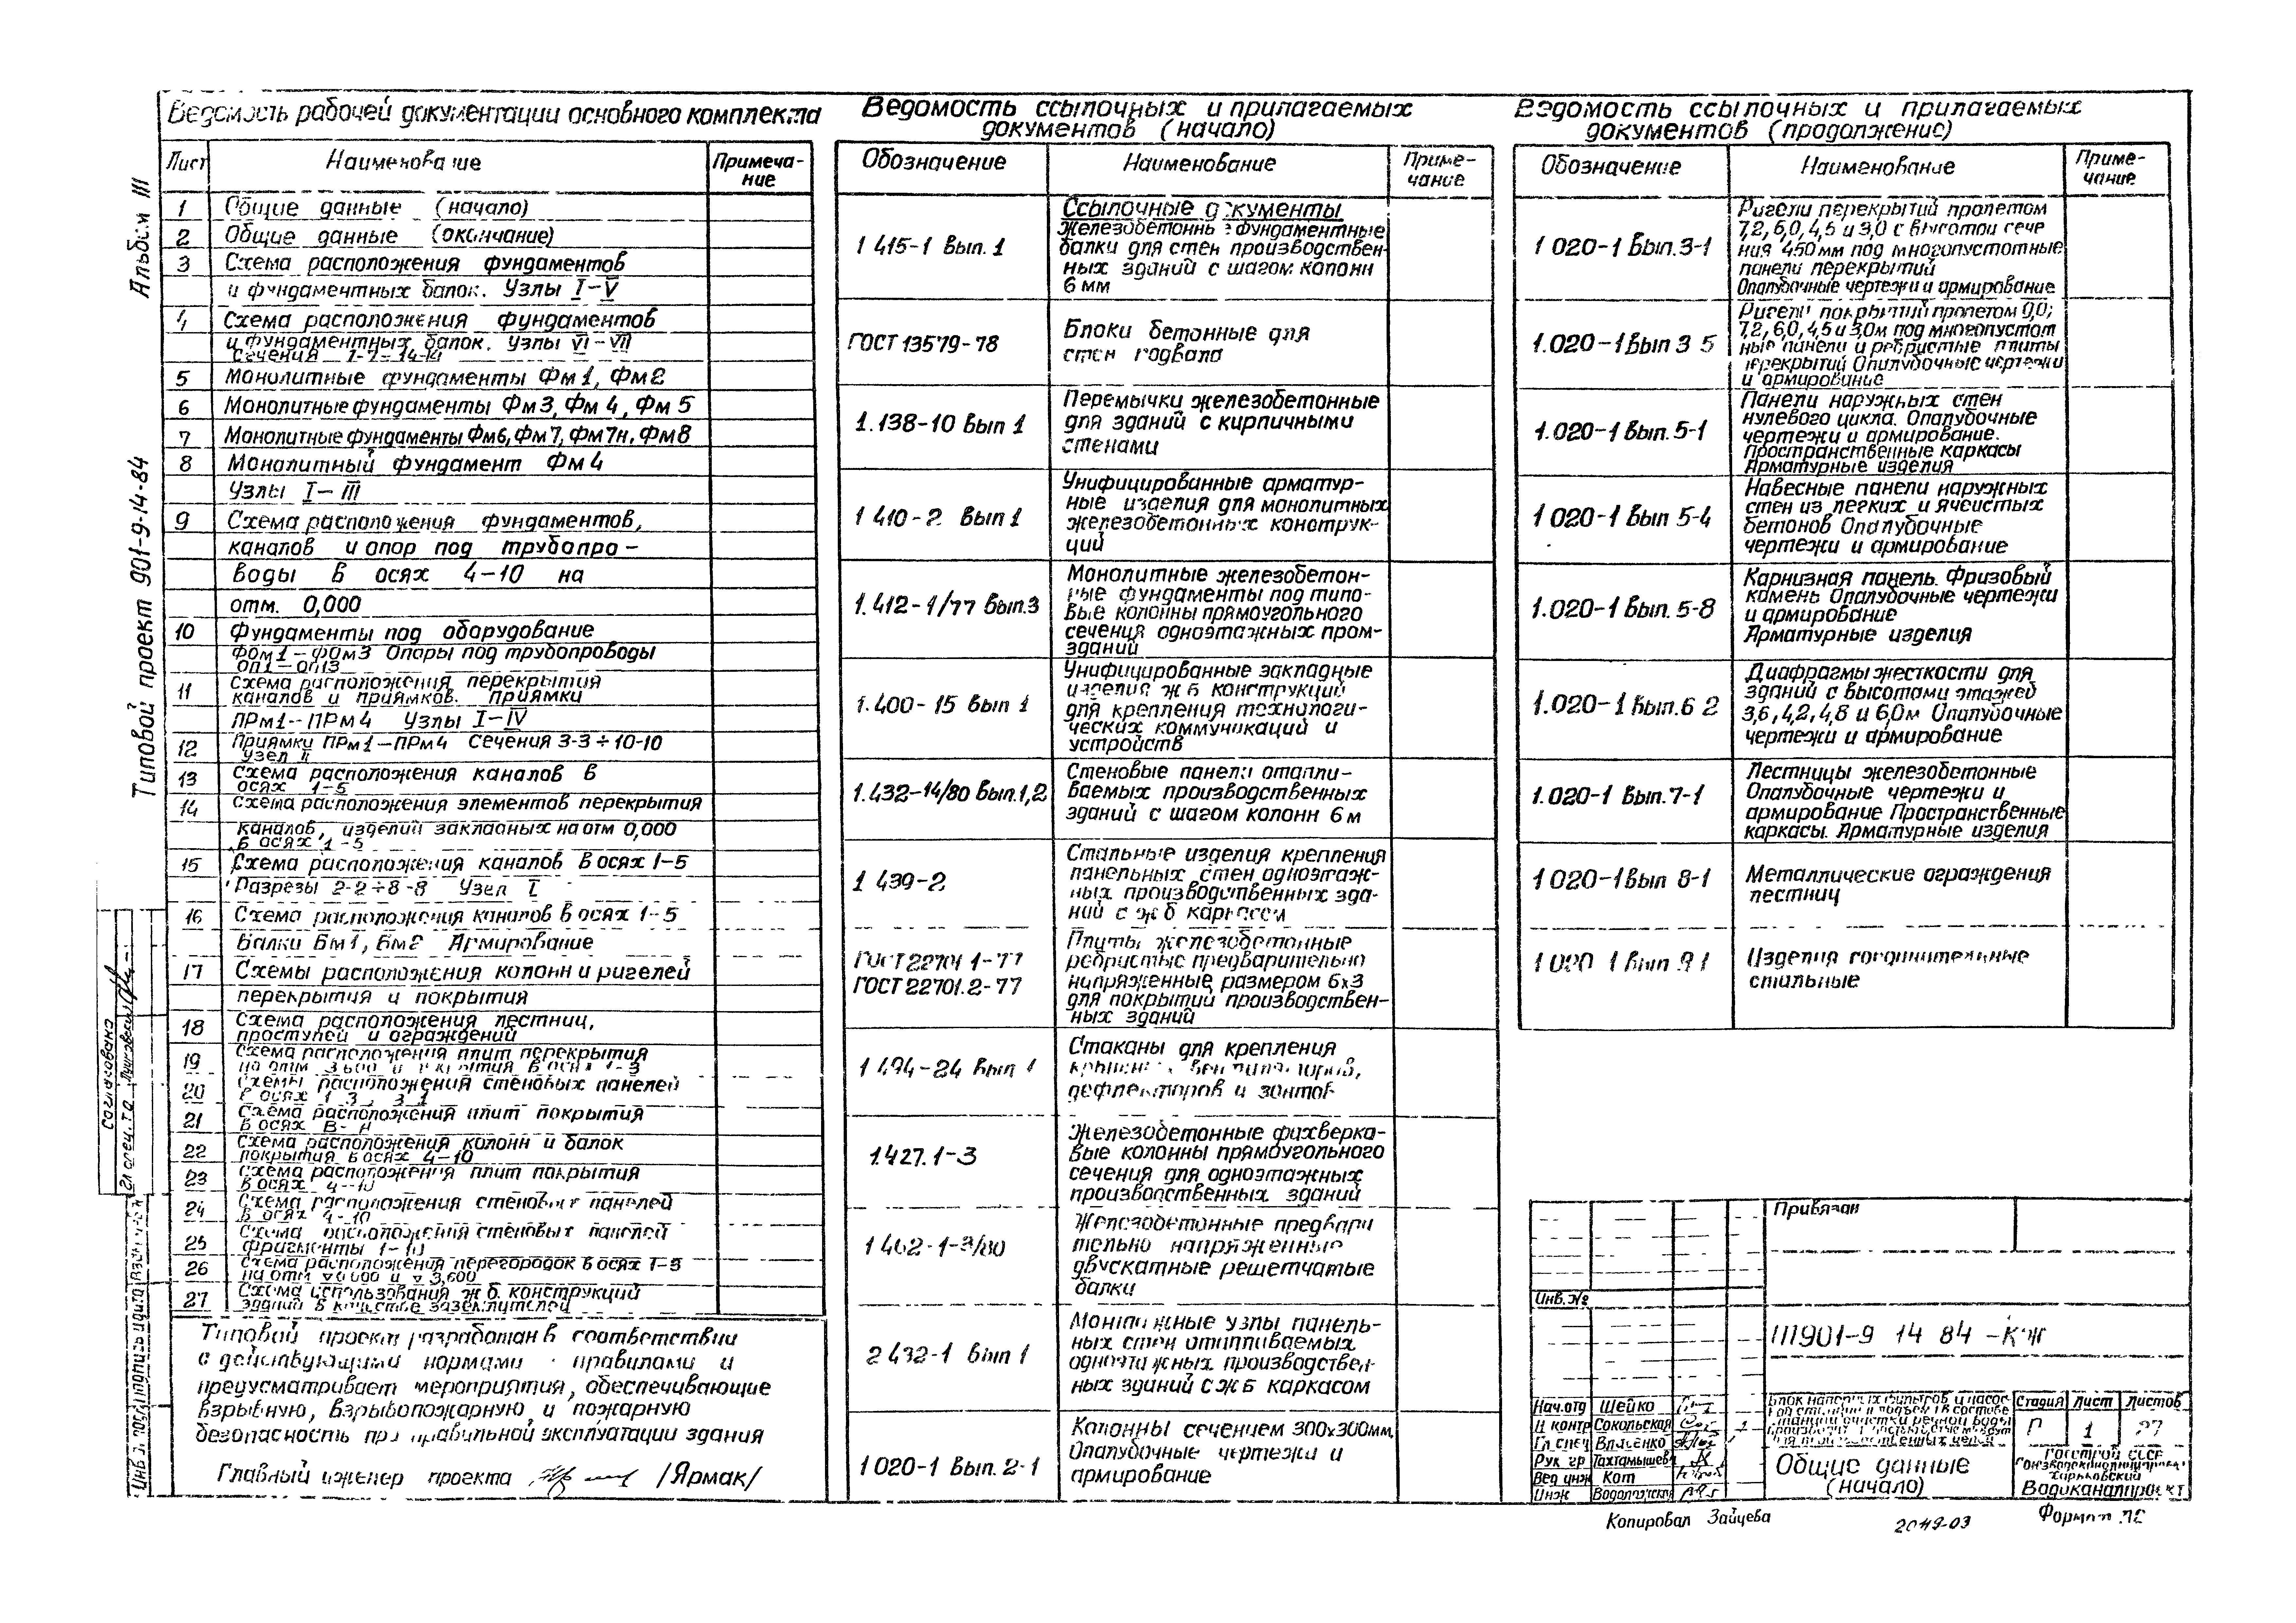 Альбом III
Типовой проект 901-9-14-84
Ведомость рабочей документации основного комплекта
Лист Наименование Примеча-
ние
1 Общие данные (начало)
2 Общие данные (окончание)
3 Схема расположения фундаментов
и фундаментных балок. Узлы I-V
4 Схема расположения фундаментов
и фундаментных балок. Узлы VI-VII
Сечения 1-1-14-14
5 Монолитные фундаменты Фм1, Фм2
6 Монолитные фундаменты Фм3, Фм4, Фм5
7 Монолитные фундаменты Фм6, Фм7, Фм7н, Фм8
8 Монолитный фундамент Фм4
Узлы I-III
9 Схема расположения фундаментов,
каналов и опор под трубопро-
воды в осях 4-10 на
отм. 0,000
10 Фундаменты под оборудование
Фом1-Фом3 Опоры под трубопроводы
оп1-оп13
11 Схема расположения перекрытия
каналов и приямков. Приямки
ПРм1-ПРм4 Узлы I-IV
12 Приямки ПРм1-ПРм4 Сечения 3-3÷10-10
Узел II
13 Схема расположения каналов в
осях 1-5
14 Схема расположения элементов перекрытия
каналов, изделий закладных на отм 0,000
в осях 1-5
15 Схема расположения каналов в осях 1-5
Разрезы 2-2÷8-8 Узел I
16 Схема расположения каналов в осях 1-5
Балки Бм1, Бм2 Армирование
17 Схемы расположения колонн и ригелей
перекрытия и покрытия
18 Схема расположения лестниц,
проступей и ограждений
19 Схема расположения плит перекрытия
на отм 3,600 и покрытия в осях 1-3
20 Схемы расположения стеновых панелей
в осях 1-3, 3-1
21 Схема расположения плит покрытия
в осях
22 Схема расположения колонн и балок
покрытия в осях 4-10
23 Схема расположения плит покрытия
в осях 4-10
24 Схема расположения стеновых панелей
в осях 4-10
25 Схема расположения стеновых панелей
фрагменты 1-10
26 Схема расположения перегородок в осях 1-3
на отм 0.000 и 3,600
27 Схема использования ж.б. конструкций
зданий в качестве заземлителей
Типовой проект разработан в соответствии
с действующими нормами и правилами и
предусматривает мероприятия, обеспечивающие
взрывную, взрывопожарную и пожарную
безопасность при правильной эксплуатации здания
Главный инженер проекта /Ярмак/
Ведомость ссылочных и прилагаемых
документов (начало)
Обозначение Наименование Приме-
чание
Ссылочные документы
1 415-1 Вып. 1 Железобетонные фундаментные
балки для стен производствен-
ных зданий с шагом колонн
6 мм
ГОСТ 13579-78 Блоки бетонные для
стен подвала
1.138-10 Вып 1 Перемычки железобетонные
для зданий с кирпичными
стенами
1 410-2 Вып 1 Унифицированные арматур-
ные изделия для монолитных
железобетонных конструк-
ций
1.412-1/77 Вып.3 Монолитные железобетон-
ные фундаменты под типо-
вые колонны прямоугольного
сечения одноэтажных пром-
зданий
1.400-15 Вып 1 Унифицированные закладные
изделия ж б конструкций
для крепления технологи-
ческих коммуникаций и
устройств
1.432-14/80 Вып.1,2 Стеновые панели отапли-
ваемых производственных
зданий с шагом колонн 6 м
1 439-2 Стальные изделия крепления
панельных стен одноэтаж-
ных производственных зда-
ний с ж б каркасом
ГОСТ 22701 1-77
ГОСТ 22701.2-77 Плиты железобетонные
ребристые предварительно
напряженные размером 6х3
для покрытий производствен-
ных зданий
1 494-24 Вып 1 Стаканы для крепления
крышных вентиляторов,
дефлекторов и зонтов
1.427.1-3 Железобетонные фахверко-
вые колонны прямоугольного
сечения для одноэтажных
производственных зданий
1 462-1-3/80 Железобетонные предвари
тельно напряженные
двускатные решетчатые
балки
2 432-1 Вып 1 Монтажные узлы панель-
ных стен отапливаемых
одноэтажных производствен-
ных зданий с ж б каркасом
1 020-1 Вып. 2-1 Колонны сечением 300х300мм.
Опалубочные чертежи и
армирование
Ведомость ссылочных и прилагаемых
документов (продолжение)
Обозначение Наименование Приме-
чание
1 020-1 Вып.3-1 Ригели перекрытий пролетом
7,2, 6,0, 4,5 и 3,0 с высотой сече
ния 450мм под многопустотные
панели перекрытий
Опалубочные чертежи и армирование
1.020-1 Вып 3 5 Ригели покрытий пролетом 9,0;
7,2, 6,0, 4,5 и 3,0м под многопустот
ные панели и ребристые плиты
перекрытий Опалубочные чертежи
и армирование
1.020-1 Вып. 5-1 Панели наружных стен
нулевого цикла. Опалубочные
чертежи и армирование.
Пространственные каркасы
Арматурные изделия
1 020-1 Вып 5-4 Навесные панели наружных
стен из легких и ячеистых
бетонов Опалубочные
чертежи и армирование
1.020-1 Вып. 5-8 Карнизная панель. Фризовый
камень Опалубочные чертежи
и армирование
Арматурные изделия
1.020-1 Вып.6 2 Диафрагмы жесткости для
зданий с высотами этажей
3,6, 4,2, 4,8 и 6,0м Опалубочные
чертежи и армирование
1.020-1 Вып.7-1 Лестницы железобетонные
Опалубочные чертежи и
армирование Пространственные
каркасы. Арматурные изделия
1 020-1 Вып 8-1 Металлические ограждения
лестниц
1 020 1 Вып 9 1 Изделия соединительные
стальные
Привязан
Инв. №
ТП 901-9 14 84 -КЖ
Нач.отд Шейко
Н контр Сокольская
Гл.спец Власенко
Рук гр Тахтамышева
Вед инж Кот
Инж
Блок напорных фильтров и насос
ной станции II подъема в составе
станции очистки речной воды
Стадия Лист Листов
Р 1 27
Общие данные
(начало)
Госстрой СССР
Харьковский
Водоканалпроект
Согласовано
Гл спец. ТО
Инв № подл Подпись и дата Взам инв №
Копировал Зайцева
Формат